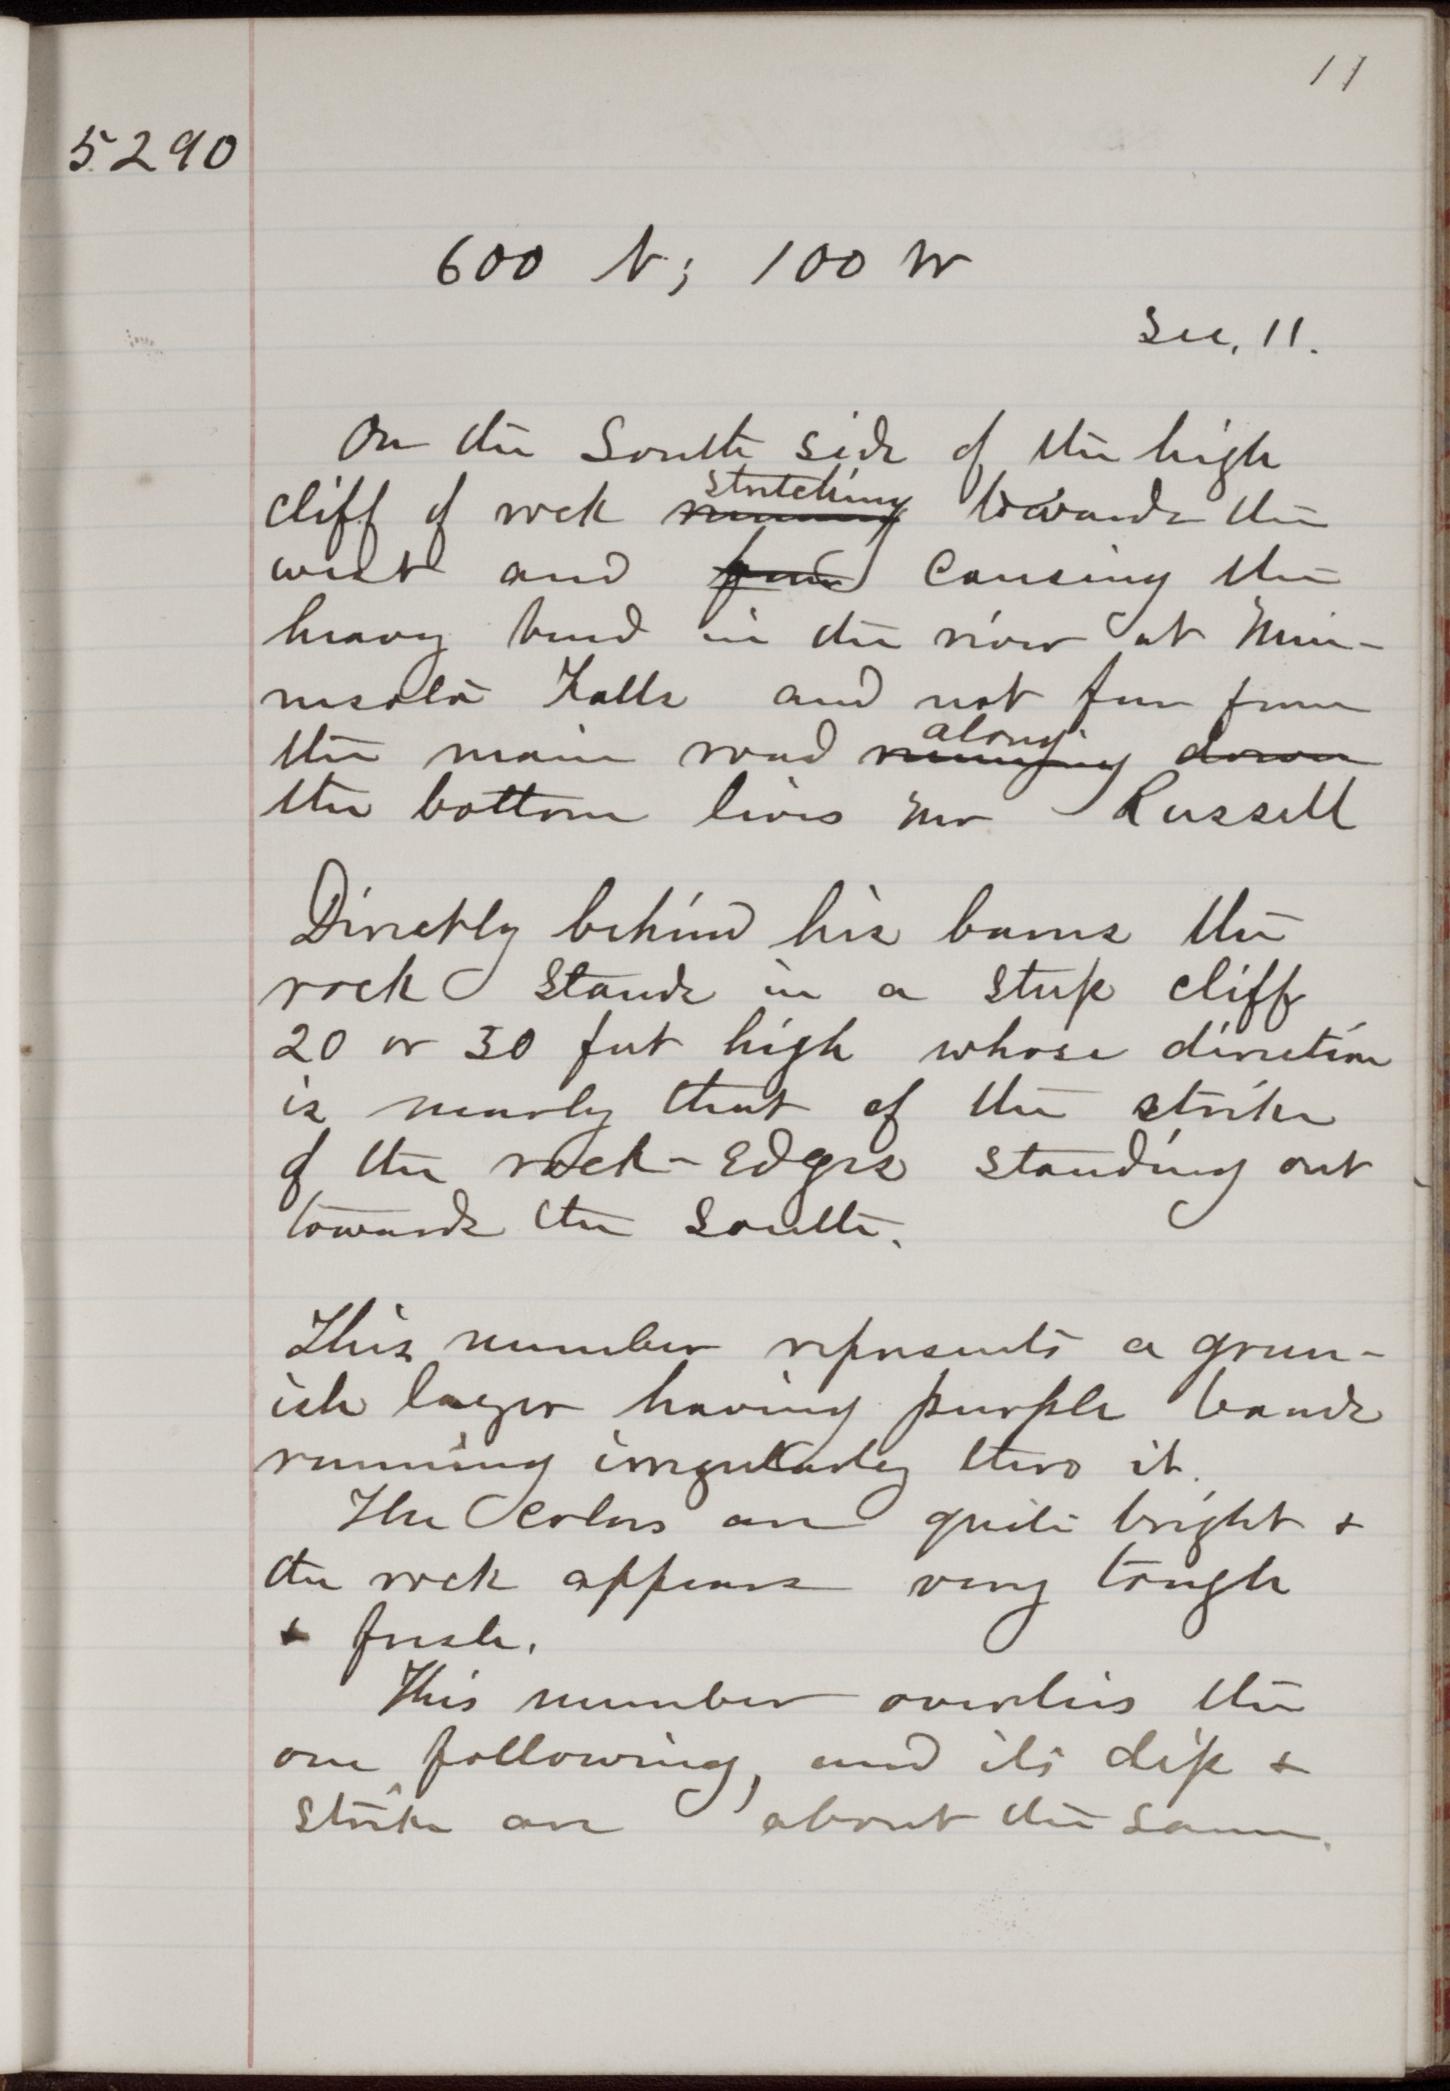 11
5290
600 N; 100 W
Sec, 11.
On the South side of the high
cliff of rock ~~running~~ stretching towards the
west and causing the
heavy bend in the river at Min-
nesota Falls and not far from
the main road ~~running~~ along ~~down~~
the bottom lives Mr Russell
Directly behind his barns the
rock stands in a steep cliff
20 or 30 feet high whose direction
is nearly that of the strike
of the rock - Edges standing out
towards the South.
This number represents a green-
ish layer having purple bands
running irregularly thro it.
The colors are quite bright +
the rock appears very tough
+ fresh.
This number overlies the
one following, and its dip +
strike are about the same.